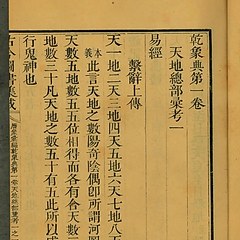 乾象典第一卷
天地總部彙考一
易經
繫辭上傳
天一地二天三地四天五地六天七地八天
本義此言天地之數陽奇陰偶即所謂河圖
天數五地數五五位相得而各有合天數二
地數三十凡天地之數五十有五此所以成
行鬼神也
古今圖書集成